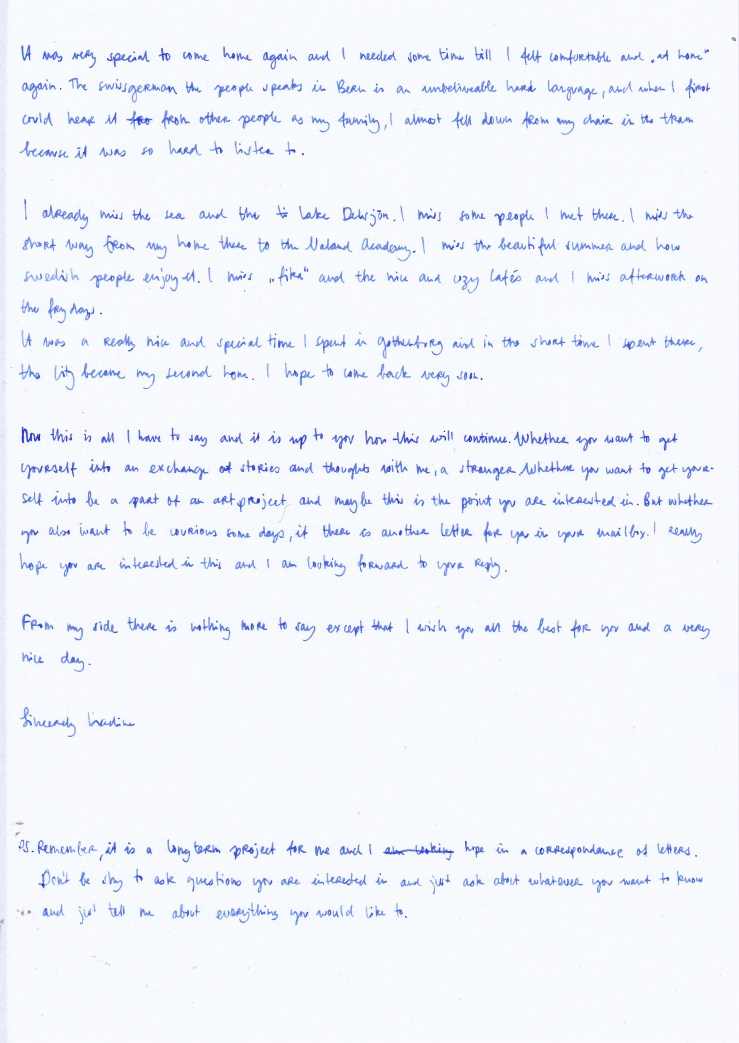 It was very special to come home again and I needed some time till I felt comfortable and „at home"
again. The swissgerman the people speaks in Bern is an unbeliveable hard language, and when I first
could hear it from other people as my family, I almost fell down from my chair in the tram
because it was so hard to listen to.
I already miss the sea and the Lake Delsjön. I miss some people I met there. I miss the
short way from my home there to the Valand Academy. I miss the beautiful summer and how
swedish people enjoy it. I miss „fika" and the nice and cozy Cafés and I miss afterwork on
the frydays.
It was a really nice and special time I spent in Gothenburg and in the short time I spent there,
the City became my second home. I hope to come back very soon.
Now this is all I have to say and it is up to you how this will continue. Whether you want to get
yourself into an exchange of stories and thoughts with me, a stranger. Whether you want to get your-
self into be a part of an artproject, and maybe this is the point you are interested in. But whether
you also want to be courious some days, if there is another letter for you in your mailbox. I really
hope you are interested in this and I am looking forward to your reply.
From my side there is nothing more to say except that I wish you all the best for you and a very
nice day.
Sincerely
PS. Remember, it is a longterm project for me and I am looking hope in a correspondance of letters.
Don't be shy to ask questions you are interested in and just ask about whatever you want to know
and just tell me about everything you would like to.